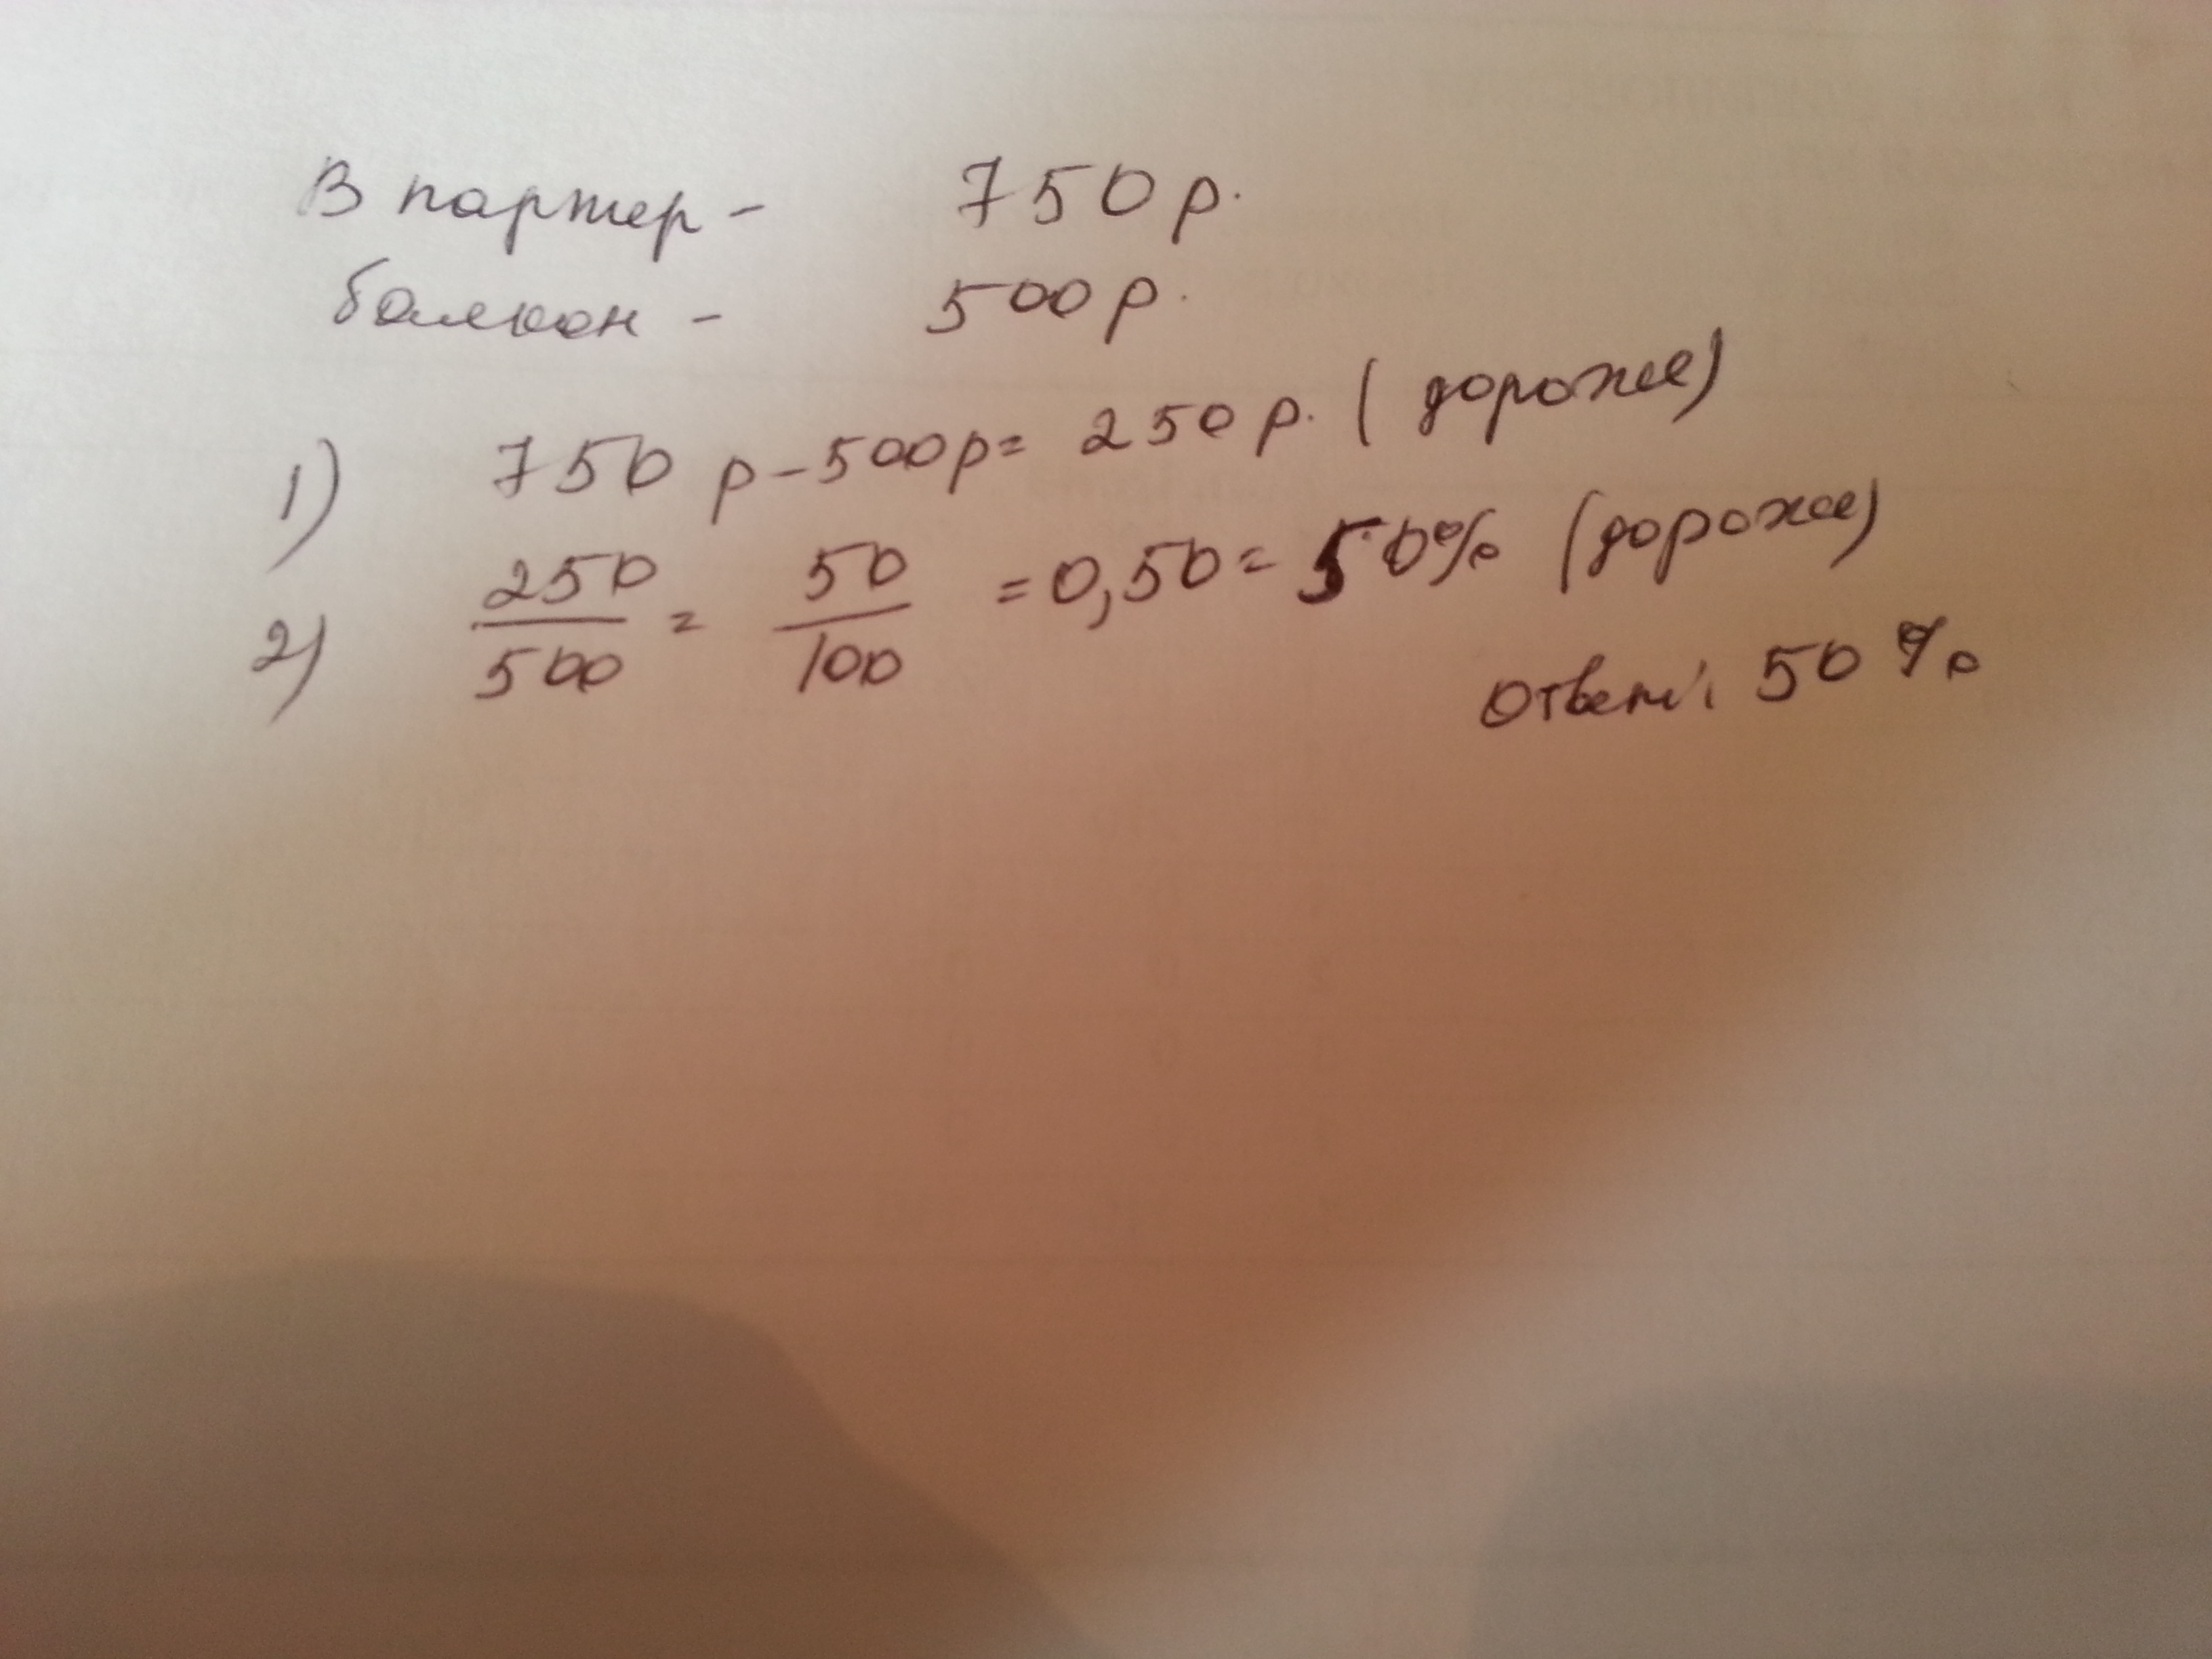 В партер - 750 р.
балкон - 500 р.
1) 750 р - 500 р = 250 р. (дороже)
2) 250/500 = 50/100 = 0,50 = 50% (дороже)
Ответ: 50%